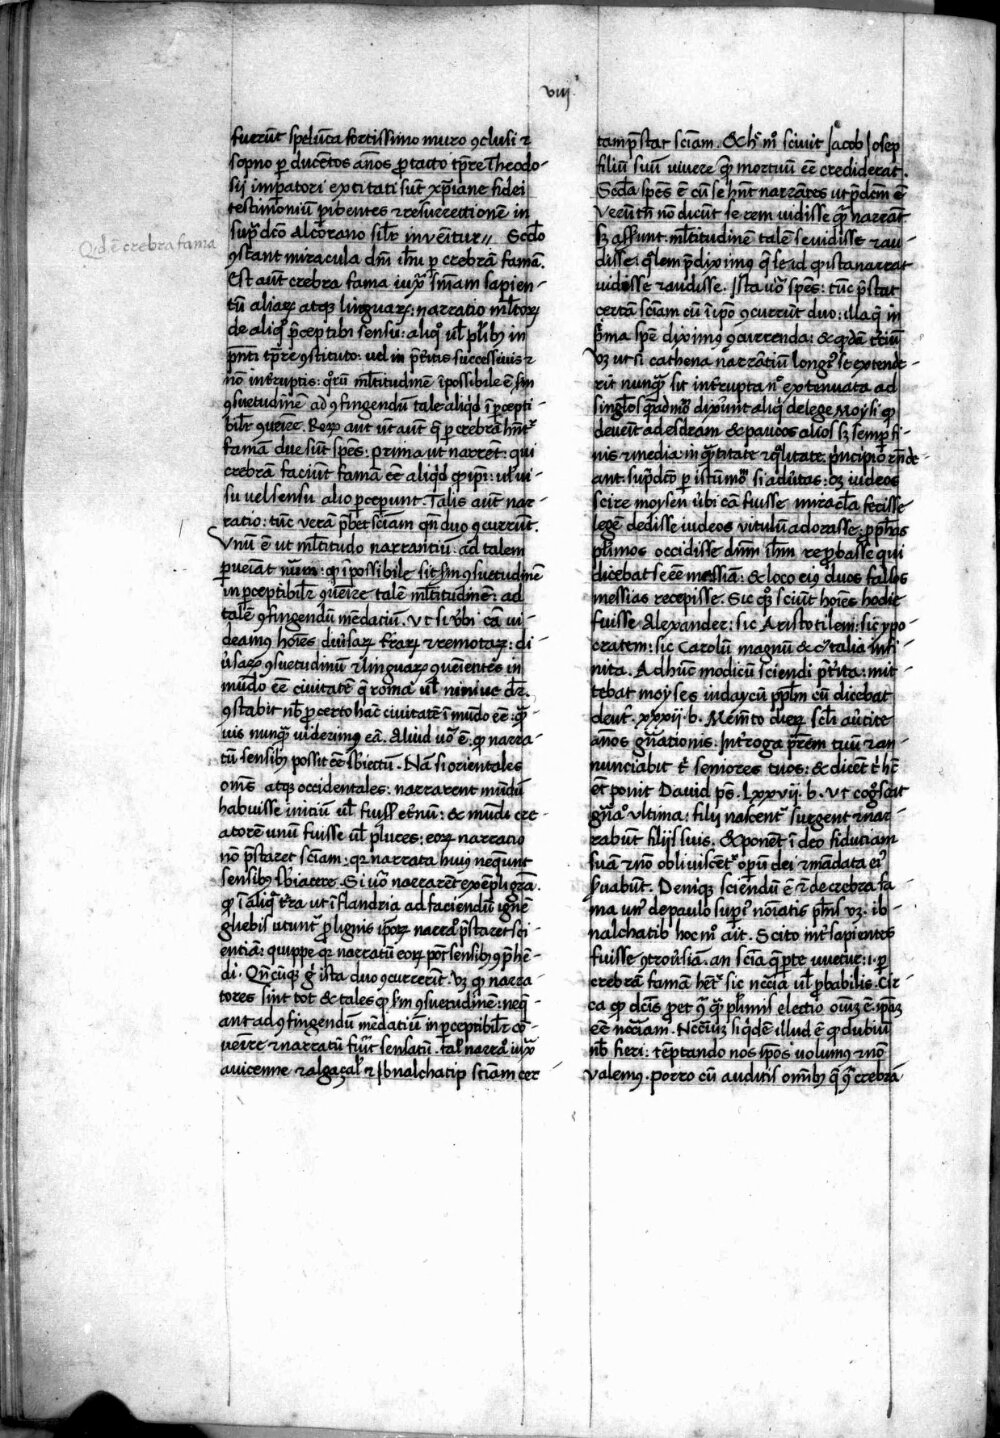 viij
Qd ē crebra fama
fuerūt spelūca fortissimo muro ꝯclusi ⁊
sopno ꝑ ducētos ān̄os ꝓ tanto tp̄re Theodo-
sij impatori excitati sūt xp̄iane fidei
testimōniuꝫ p̱ibentes ⁊ resurrectionē in
supᵃ dc̄o alcōrano sil'r invēitur // Scd̄o
ꝯstant miracula dn̄i ih̄u ꝑ crebrā famaꝫ.
Est aūt crebra fama iuxᵃ sn̄iam sapien-
tū aliaꝝ atqꝫ linguaꝝ: narratio ml̄toꝝ
de aliqᵒ p̄ceptibi sensu: aliqᵒ ul' pl'ibꝫ in
pn̄ti tp̄re ꝯstituto: uel in p̄t'itis successiuis ⁊
nōn int'ruptis: qᵒrū ml̄titudinē īpossibile ē sm̄
ꝯsuetudinē ad ꝯfingendū tale aliqid īp̱cepti-
bil'r ꝯuēire. Reꝝ aūt ut aūt q̄ ꝑ crebrā hn̄tʳ
famā due sūt sp̄es: prima ut narrēt: qui
crebrā faciūt famā eē aliqid qᵈ ip̄i: ul' ui-
su uel sensu alio ꝑcepunt. Talis aūt nar-
ratio: tūc verā p̄bet sciām qn̄ duo ꝯcurrūt.
Vnū ē ut ml̄titudo narrantiū: ad talem
ꝑueniat num: qᵈ īpossibile sit sm̄ ꝯsuetudinē
inꝑceptibil'r ꝯuēire talē ml̄titudinē: ad
talē ꝯfingendū mēdaciū. Vt si urbi cā ui-
deamus hoīes diu'saꝝ t'raꝝ ⁊ remotaꝝ: di-
u'saꝝ ꝯsuetudinū ⁊ linguaꝝ ꝯuēientes in
mūdo eē ciuitatē q̄ roma ul' niniue dr̄.
ꝯstabit nb̄ ꝓ certo hāc ciuitatē ī mūdo eē: qᵃ-
vis nunqᵃ uiderimus eā. Aliud uᵒ ē. qᵈ narra-
tū sensibꝫ possit eē sb̄iectū. Nā si orientales
om̄s atqꝫ occidentales: narrarent mūdū
habuisse iniciū ul' fuisse et'nū: & mūdi cre-
atorē unū fuisse ul' plures: eoꝝ narratio
nō p̄staret sciām: qꝛ narrata huiꝰ neqūnt
sensibꝫ sb̄iacere. Si uᵒ narrarēt exēpli gr̄a.
qᵈ ī aliqᵃ t'ra ut ī flandria ad faciendū ignē
glebis utuntʳ ꝓ lignis ip̄oꝝ narrᵒ p̄staret sci-
entiā: quippe qꝛ narratū eoꝝ pōt sensibꝫ ꝯp̄hē-
di. Qn̄cūqꝫ gͥ ista duo ꝯcurrerīt. Vꝫ qᵈ narra-
tores sint tot & tales qᵈ sm̄ ꝯsuetudinē: neqᵉ-
ant ad ꝯfingendū mēdatiū inꝑceptibil'r cō-
venīre ⁊ narratū fuīt sensatū. tal' narrᵒ iuxᵃ
auicenne ⁊ algaçal' ⁊ Ibnalchatip sciām cer-
tam p̄stat sciām. & hᵒ mᵒ sciuit Jacob Josep
filiū suū vivere qᵉ mortuū eē crediderat.
Scd̄a sp̄es ē cū se hn̄t narrātes ut p̄dc̄m ē
Verūtn̄ nō dicūt se rem uidisse qᵃ narrāt
sꝫ assunt ml̄titudinē talē se uidisse ⁊ au-
disse: qᵃlem p̄diximus q̄ se id qᵈ ista narrat
uidisse ⁊ audisse. Ista uᵒ sp̄es: tūc p̄stat
certā sciām cū ī ip̄o ꝯcurrūt duo: illa q̄ in
p̄ma sp̄e diximus ꝯcurrenda: & qᵈdā t'ciū
Vꝫ ut si cathena narrātiū longᵒ sē extende-
rit nunqᵃ sit int'rupta nᵒ extenuata ad
singl'os qᵉadmoꝫ dixerūt aliqī de lege Moysi qᵈ
deuēit ad esdram & paucos alios sꝫ semp̱ fi-
nis ⁊ media in qᵃntitate ⁊ qᵃlitate. p̄ncipio rn̄de-
ant. sup̄dc̄o ꝑ istū moꝫ si adu'tas: oꝫ iudeos
scire moysen ubi cā fuisse miracl̄a fecisse
legē dedisse iudeos vitulū adorasse ꝓph̄as
plimos occidisse dn̄m ih̄m reꝓbasse qui
dicebat se eē messiā: & loco eiꝰ duos falsos
messias recepisse. Sic qᵒqꝫ sciūt hoīes hodie
fuisse Alexander: sic Aristotilem: sic ypo-
cratem: sic Carolū magnū & cet' talia infi-
nita. Ad hūc modicū sciendi p̄t'ita: mit-
tebat moyses indaycū pp̄lm cū dicebat
deut'. xxxij. b. Memēto dieꝝ scl'i aūcite
ān̄os gn̄ationis: Int'roga p̄rem tuū ⁊ an-
nunciabit t' seniores tuos: & dicēt t' hᶜ
et ponit David ps̄. Lxxvij. b. Vt cogᵒscāt
gn̄aᵒ ultima: filij nascentʳ surgent ⁊ nar-
rabunt filijs suis. & ponēt ī deo fiduciam
suā ⁊ nō obliuiscētʳ opꝝ dei ⁊ mādata eiꝰ
ẜuabūt. Deniqꝫ sciendū ē ⁊ de crebra fa-
ma unꝰ de paulo supͥꝰ nōiatis ph̄is uꝫ. ib-
nalchatib hoc mᵒ ait. Scito int' sapientes
fuisse ꝯtrou'siā. an sciā q̄ ꝑte uuetur: i. ꝑ
crebrā famā hētʳ sic nc̄cīa ul' ꝓbabilis. Cir-
ca qᵈ dc̄is ꝓpet' qᵃ qᵃ pl'imis electio om̄iꝫ ē. ip̄aꝫ
eē nc̄c̄iam. Nc̄c̄iuꝫ siqͥdē illud ē qᵈ dubiū
nb̄ fieri: tēptando nos ip̄os uolumus ⁊ nō
valemꝰ. Porro cū auditis om̄ibꝫ q̄ ꝯᵃ crebrā